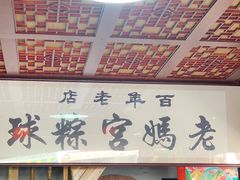 百年老店
老媽宮粽球